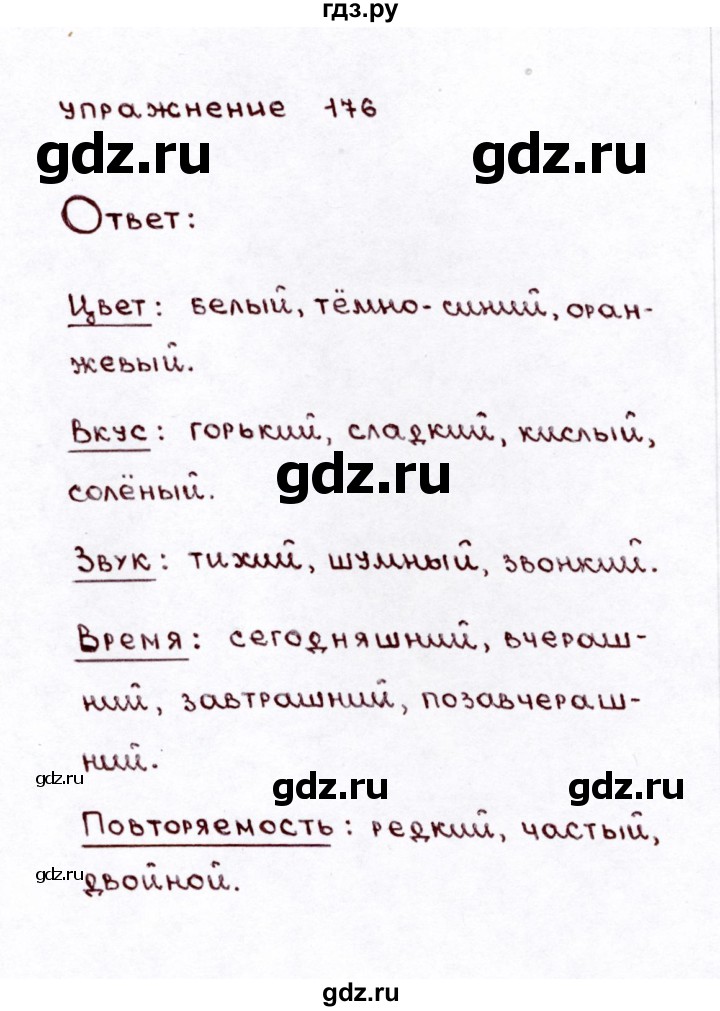 гдз.ру
упражнение 176
gdz.ru gdz.ru
Ответ:
Цвет: белый, тёмно-синий, оран-
жевый.
Вкус: горький, сладкий, кислый,
gdz.ru
солёный.
Звук: тихий, шумный, звонкий.
Время: сегодняшний, вчераш-
ний, завтрашний, позавчераш-
ний.
gdz.ru gdz.ru gdz.ru
Повторяемость: редкий, частый,
gdz.ru
двойной.
gdz.ru